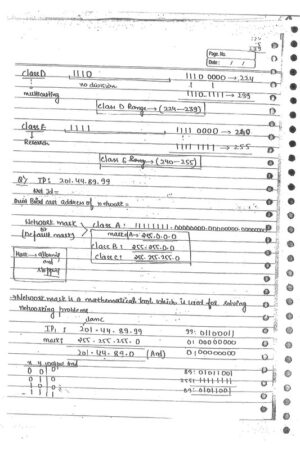 Page No.
Date: / /
Class D 1110 1110 0000 → 224
no division
multicasting 1110 1111 → 239
Class D Range → (224-239)
Class E 1111 1111 0000 → 240
Research 1111 1111 → 255
Class E Range → (240-255)
Q) IP: 201.44.89.99
Net Id =
address of network =
Network mask Class A: 11111111.00000000.00000000.00000000
or
(Default mask) mask of A: 255.0.0.0
Class B: 255.255.0.0
Class C: 255.255.255.0
and
→ Network mask is a mathematical tool which is used for solving
networking problems.
IP: 201.44.89.99 99: 01100011
mask: 255.255.255.0 0: 00000000
201.44.89.0 (And) 0: 00000000
x y output and
0 0 0 89: 01011001
0 1 0 255: 11111111
1 0 0 89: 01011001
1 1 1